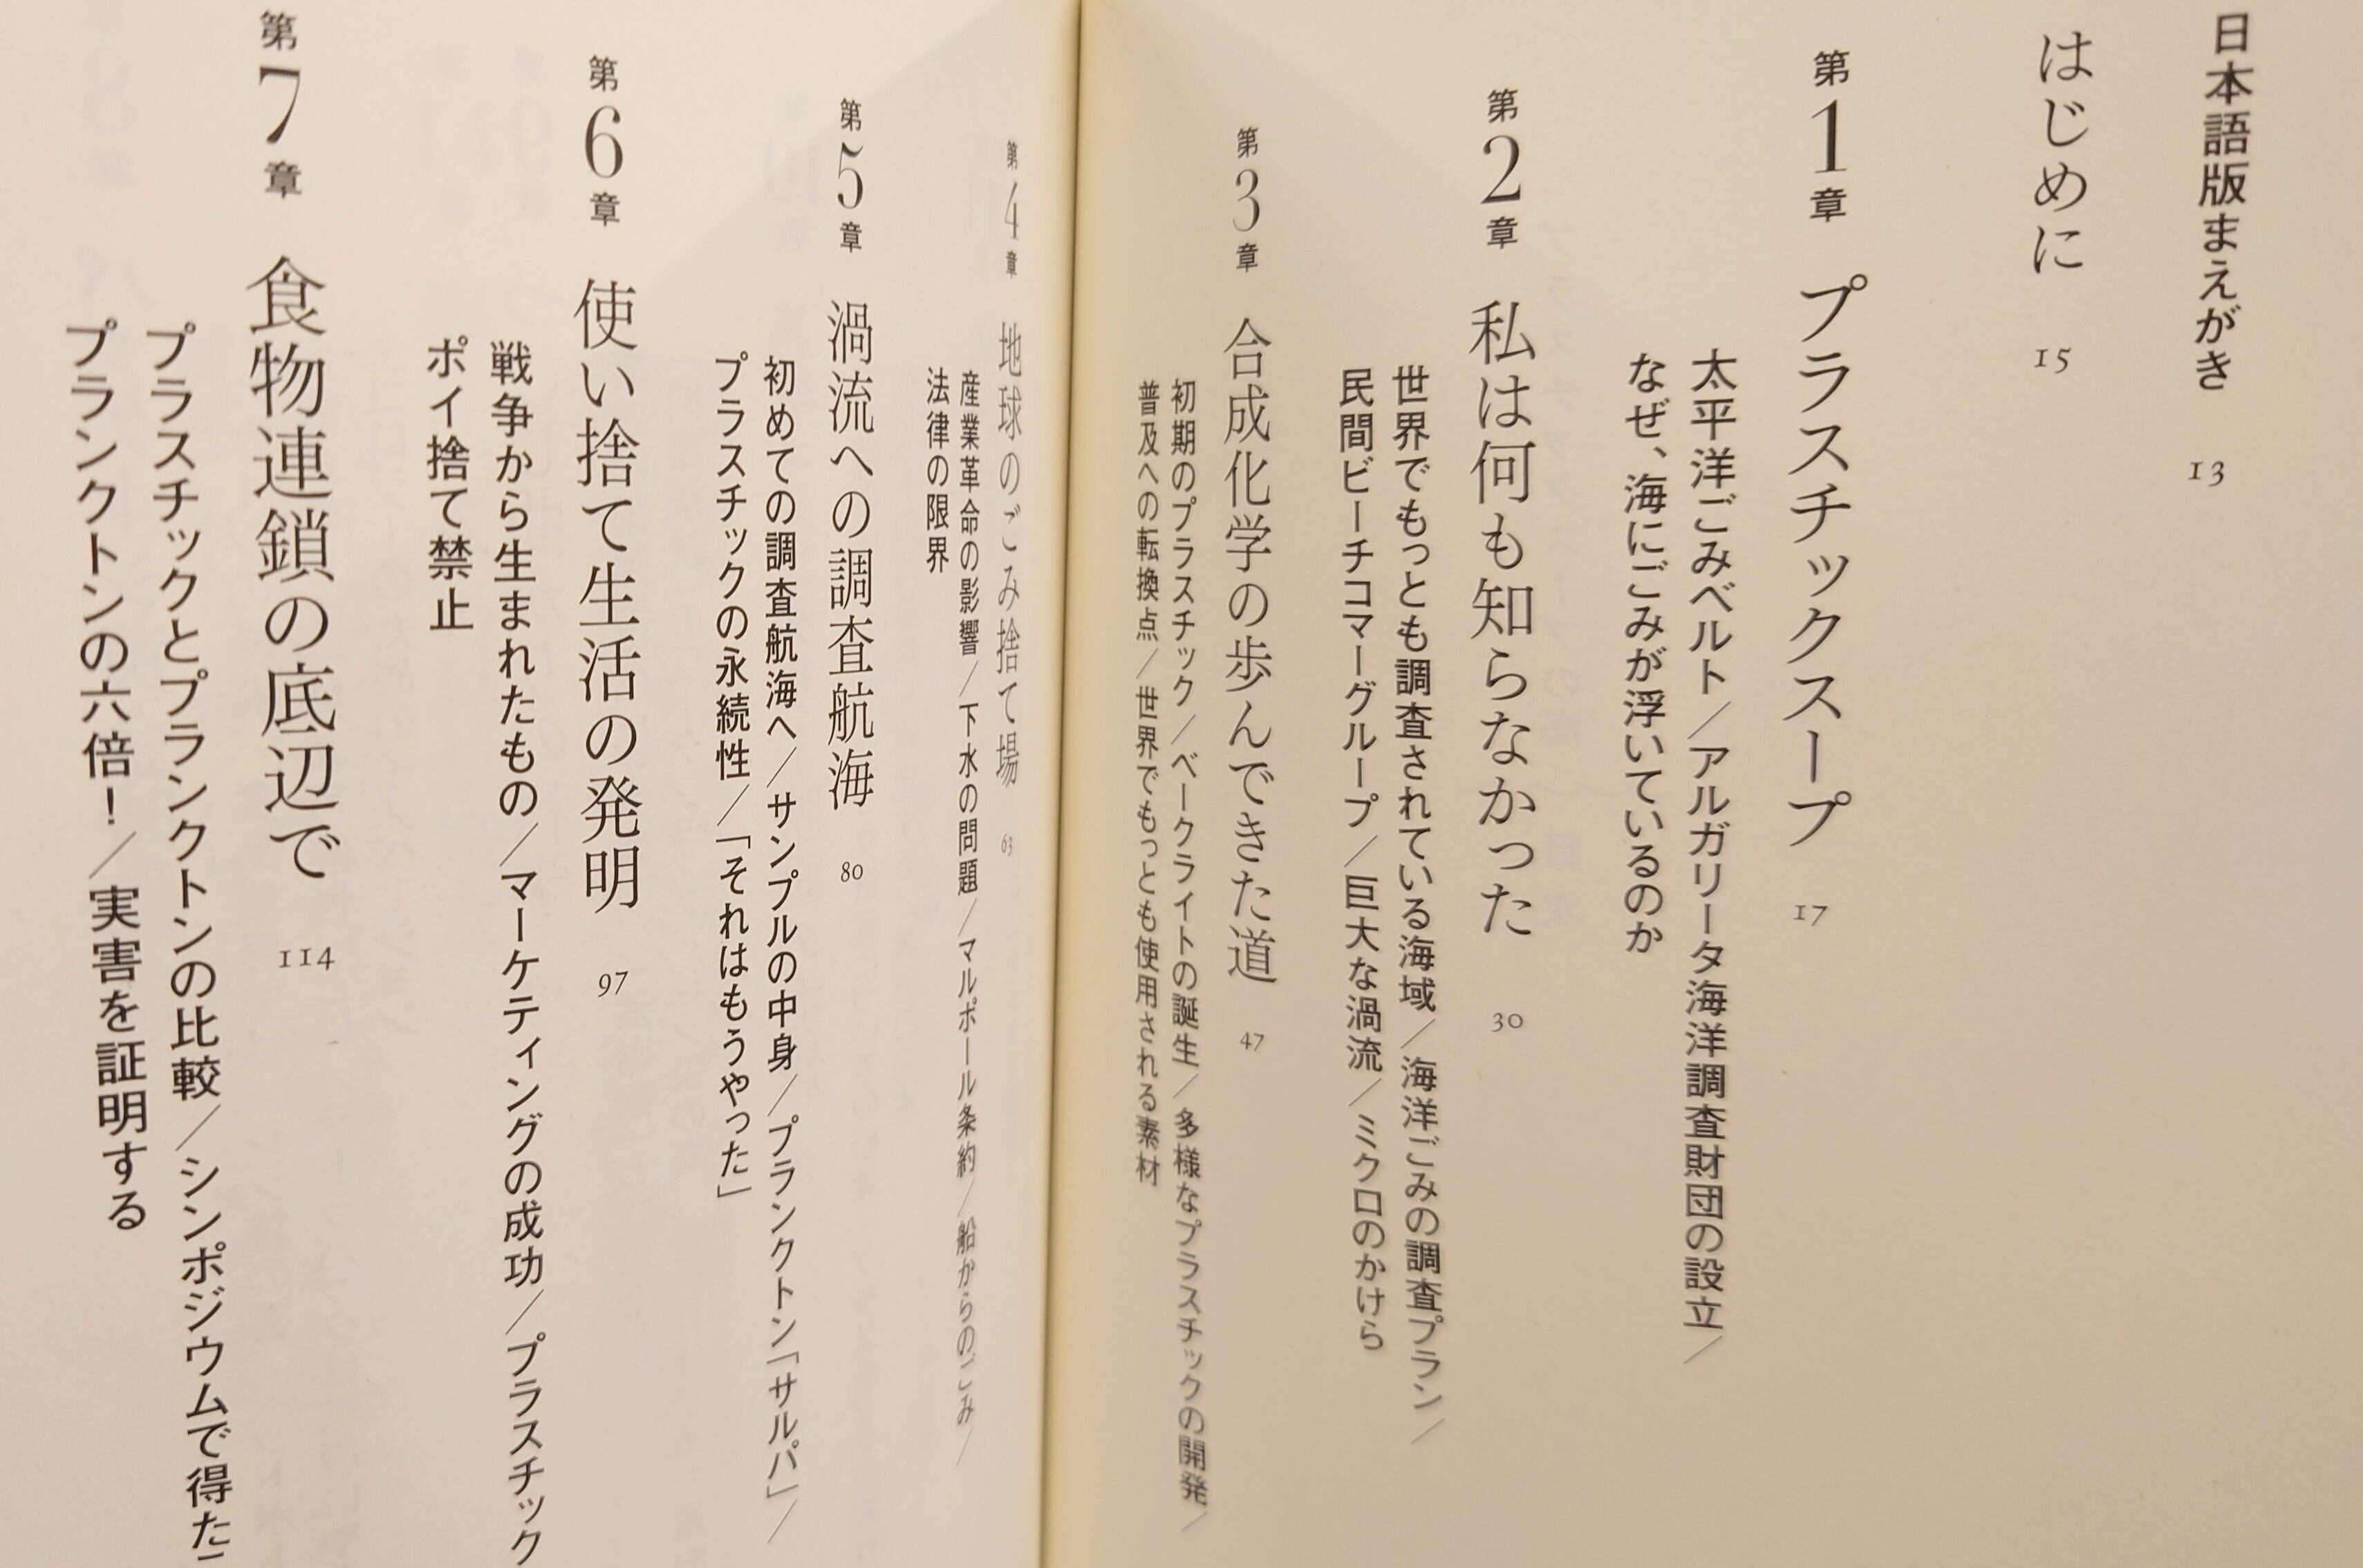 日本語版まえがき 13
はじめに 15
第1章 プラスチックスープ 17
太平洋ごみベルト／アルガリータ海洋調査財団の設立／
なぜ、海にごみが浮いているのか
第2章 私は何も知らなかった 30
世界でもっとも調査されている海域／海洋ごみの調査プラン／
民間ビーチコマーグループ／巨大な渦流／ミクロのかけら
第3章 合成化学の歩んできた道 47
初期のプラスチック／ベークライトの誕生／多様なプラスチックの開発／
普及への転換点／世界でもっとも使用される素材
第4章 地球のごみ捨て場 63
産業革命の影響／下水の問題／マルポール条約／船からのごみ／
法律の限界
第5章 渦流への調査航海 80
初めての調査航海へ／サンプルの中身／プランクトン「サルパ」／
プラスチックの永続性／「それはもうやった」
第6章 使い捨て生活の発明 97
戦争から生まれたもの／マーケティングの成功／プラスチック
ポイ捨て禁止
第7章 食物連鎖の底辺で 114
プラスチックとプランクトンの比較／シンポジウムで得た
プランクトンの六倍！／実害を証明する